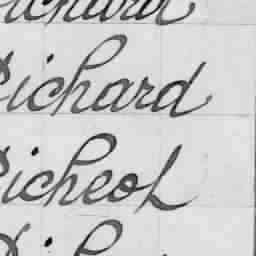 Richard
Richard
Richeol